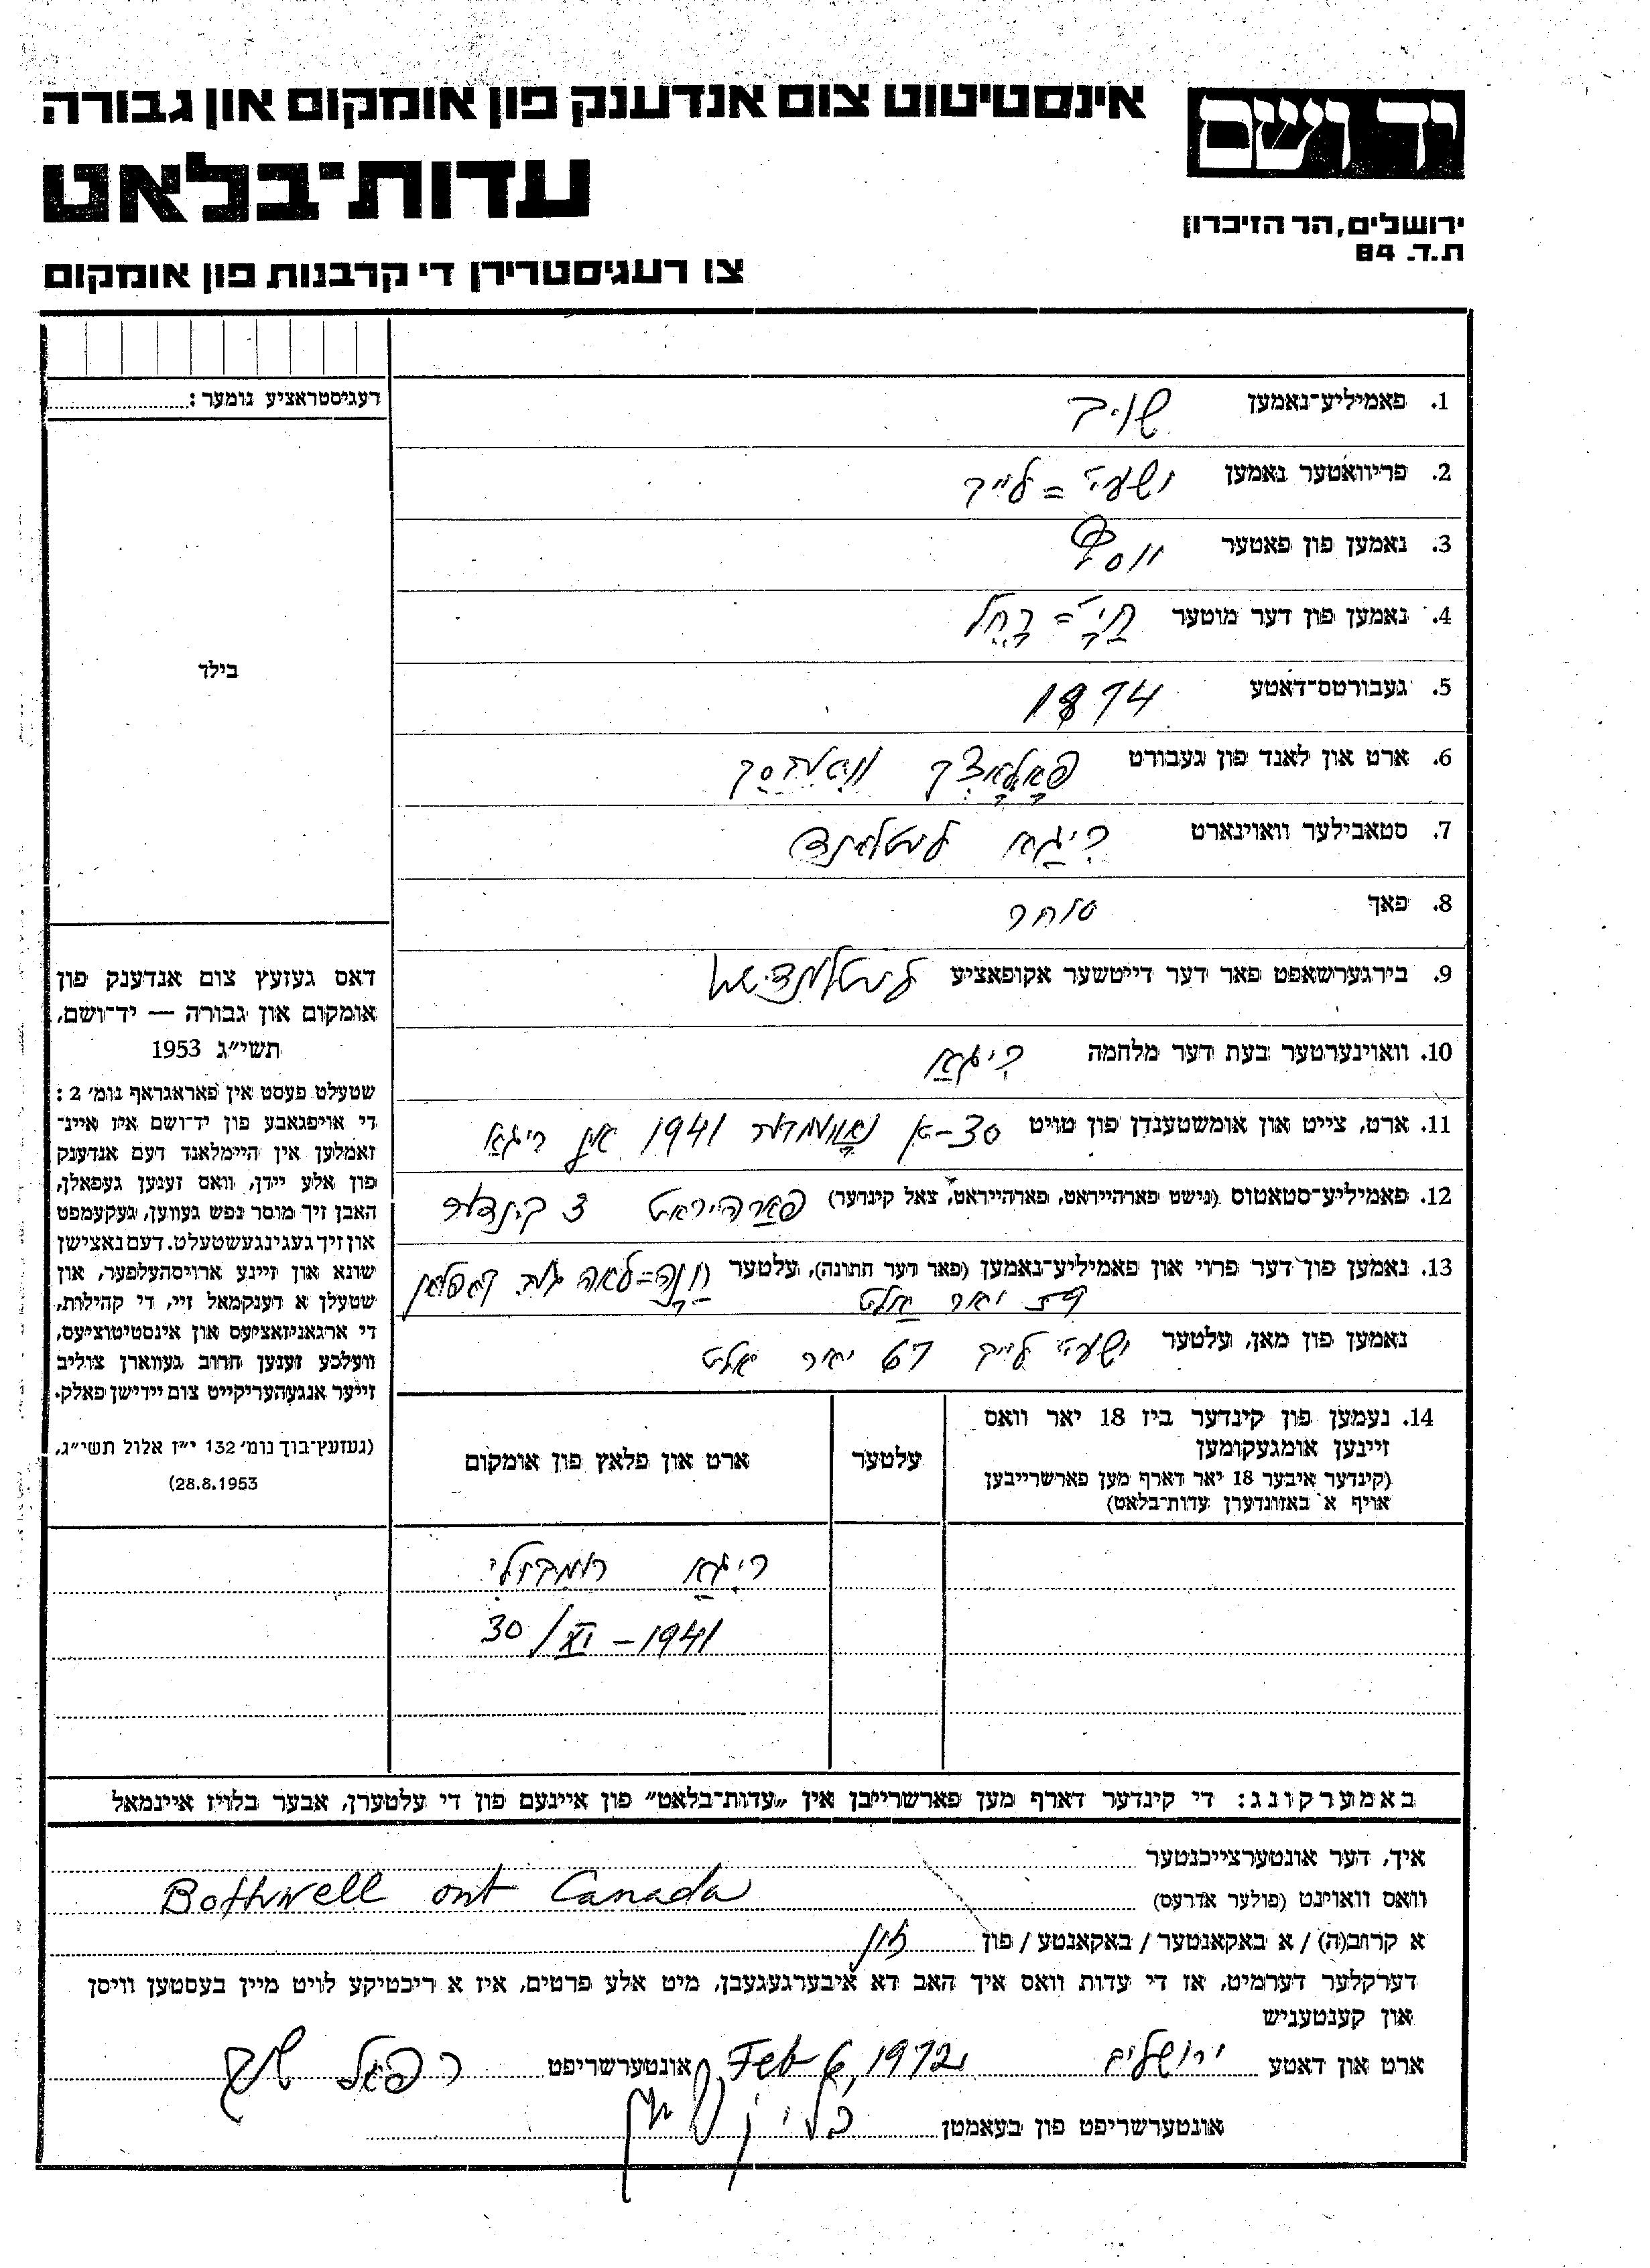 יד ושם
אינסטיטוט צום אנדענק פון אומקום און גבורה
עדות־בלאט
ירושלים, הר הזיכרון
ת.ד. 84
צו רעגיסטרירן די קרבנות פון אומקום
רעגיסטראציע נומער:
בילד
דאס געזעץ צום אנדענק פון
אומקום און גבורה — יד־ושם,
תשי״ג 1953
שטעלט פעסט אין פאראגראף נומ׳ 2:
די אויפגאבע פון יד־ושם איז איינ־
זאמלען אין היימלאנד דעם אנדענק
פון אלע יידן, וואס זענען געפאלן,
האבן זיך מוסר נפש געווען, געקעמפט
און זיך געגינגעשטעלט. דעם נאצישן
שונא און זיינע ארויסהעלפער, און
שטעלן א דענקמאל זיי, די קהילות,
די ארגאניזאציעס און אינסטיטוציעס,
וועלכע זענען חרוב געווארן צוליב
זייער אנגעהעריקייט צום יידישן פאלק.
(געזעץ־בוך נומ׳ 132 י״ז אלול תשי״ג,
28.8.1953)
1. פאמיליע־נאמען
2. פריוואטער נאמען ישעי׳ = לייב
3. נאמען פון פאטער יוסף
4. נאמען פון דער מוטער חי׳ = רחל
5. געבורטס־דאטע 1874
6. ארט און לאנד פון געבורט פאלאצק וויטבסק
7. סטאבילער וואוינארט ריגא לעטלאנד
8. פאך סוחר
9. בירגערשאפט פאר דער דייטשער אקופאציע לעטלענדיש
10. וואוינערטער בעת דער מלחמה ריגא
11. ארט, צייט און אומשטענדן פון טויט 30־טן נאוועמבער 1941 אין ריגא
12. פאמיליע־סטאטוס (נישט פארהייראט, פארהייראט, צאל קינדער) פארהיראט 3 קינדער
13. נאמען פון דער פרוי און פאמיליע־נאמען (פאר דער חתונה), עלטער חנה=לאה קאפלאן
יאר אלט
נאמען פון מאן, עלטער ישעי׳ לייב 67 יאר אלט
14. נעמען פון קינדער ביז 18 יאר וואס
זיינען אומגעקומען
(קינדער איבער 18 יאר דארף מען פארשרייבן
אויף א באזונדערן עדות־בלאט)
עלטער
ארט און פלאץ פון אומקום
ריגא רומבולי
30/XI – 1941
באמערקונג: די קינדער דארף מען פארשרייבן אין „עדות־בלאט״ פון איינעם פון די עלטערן, אבער בלויז איינמאל
איך, דער אונטערצייכנטער
וואס וואוינט (פולער אדרעס) Bothwell ont Canada
א קרוב(ה) / א באקאנטער / באקאנטע / פון זון
דערקלער דערמיט, אז די עדות וואס איך האב דא איבערגעגעבן, מיט אלע פרטים, איז א ריכטיקע לויט מיין בעסטען וויסן
און קענטעניש
ארט און דאטע ירושלים Feb 6, 1972 אונטערשריפט רפאל
אונטערשריפט פון בעאמטן